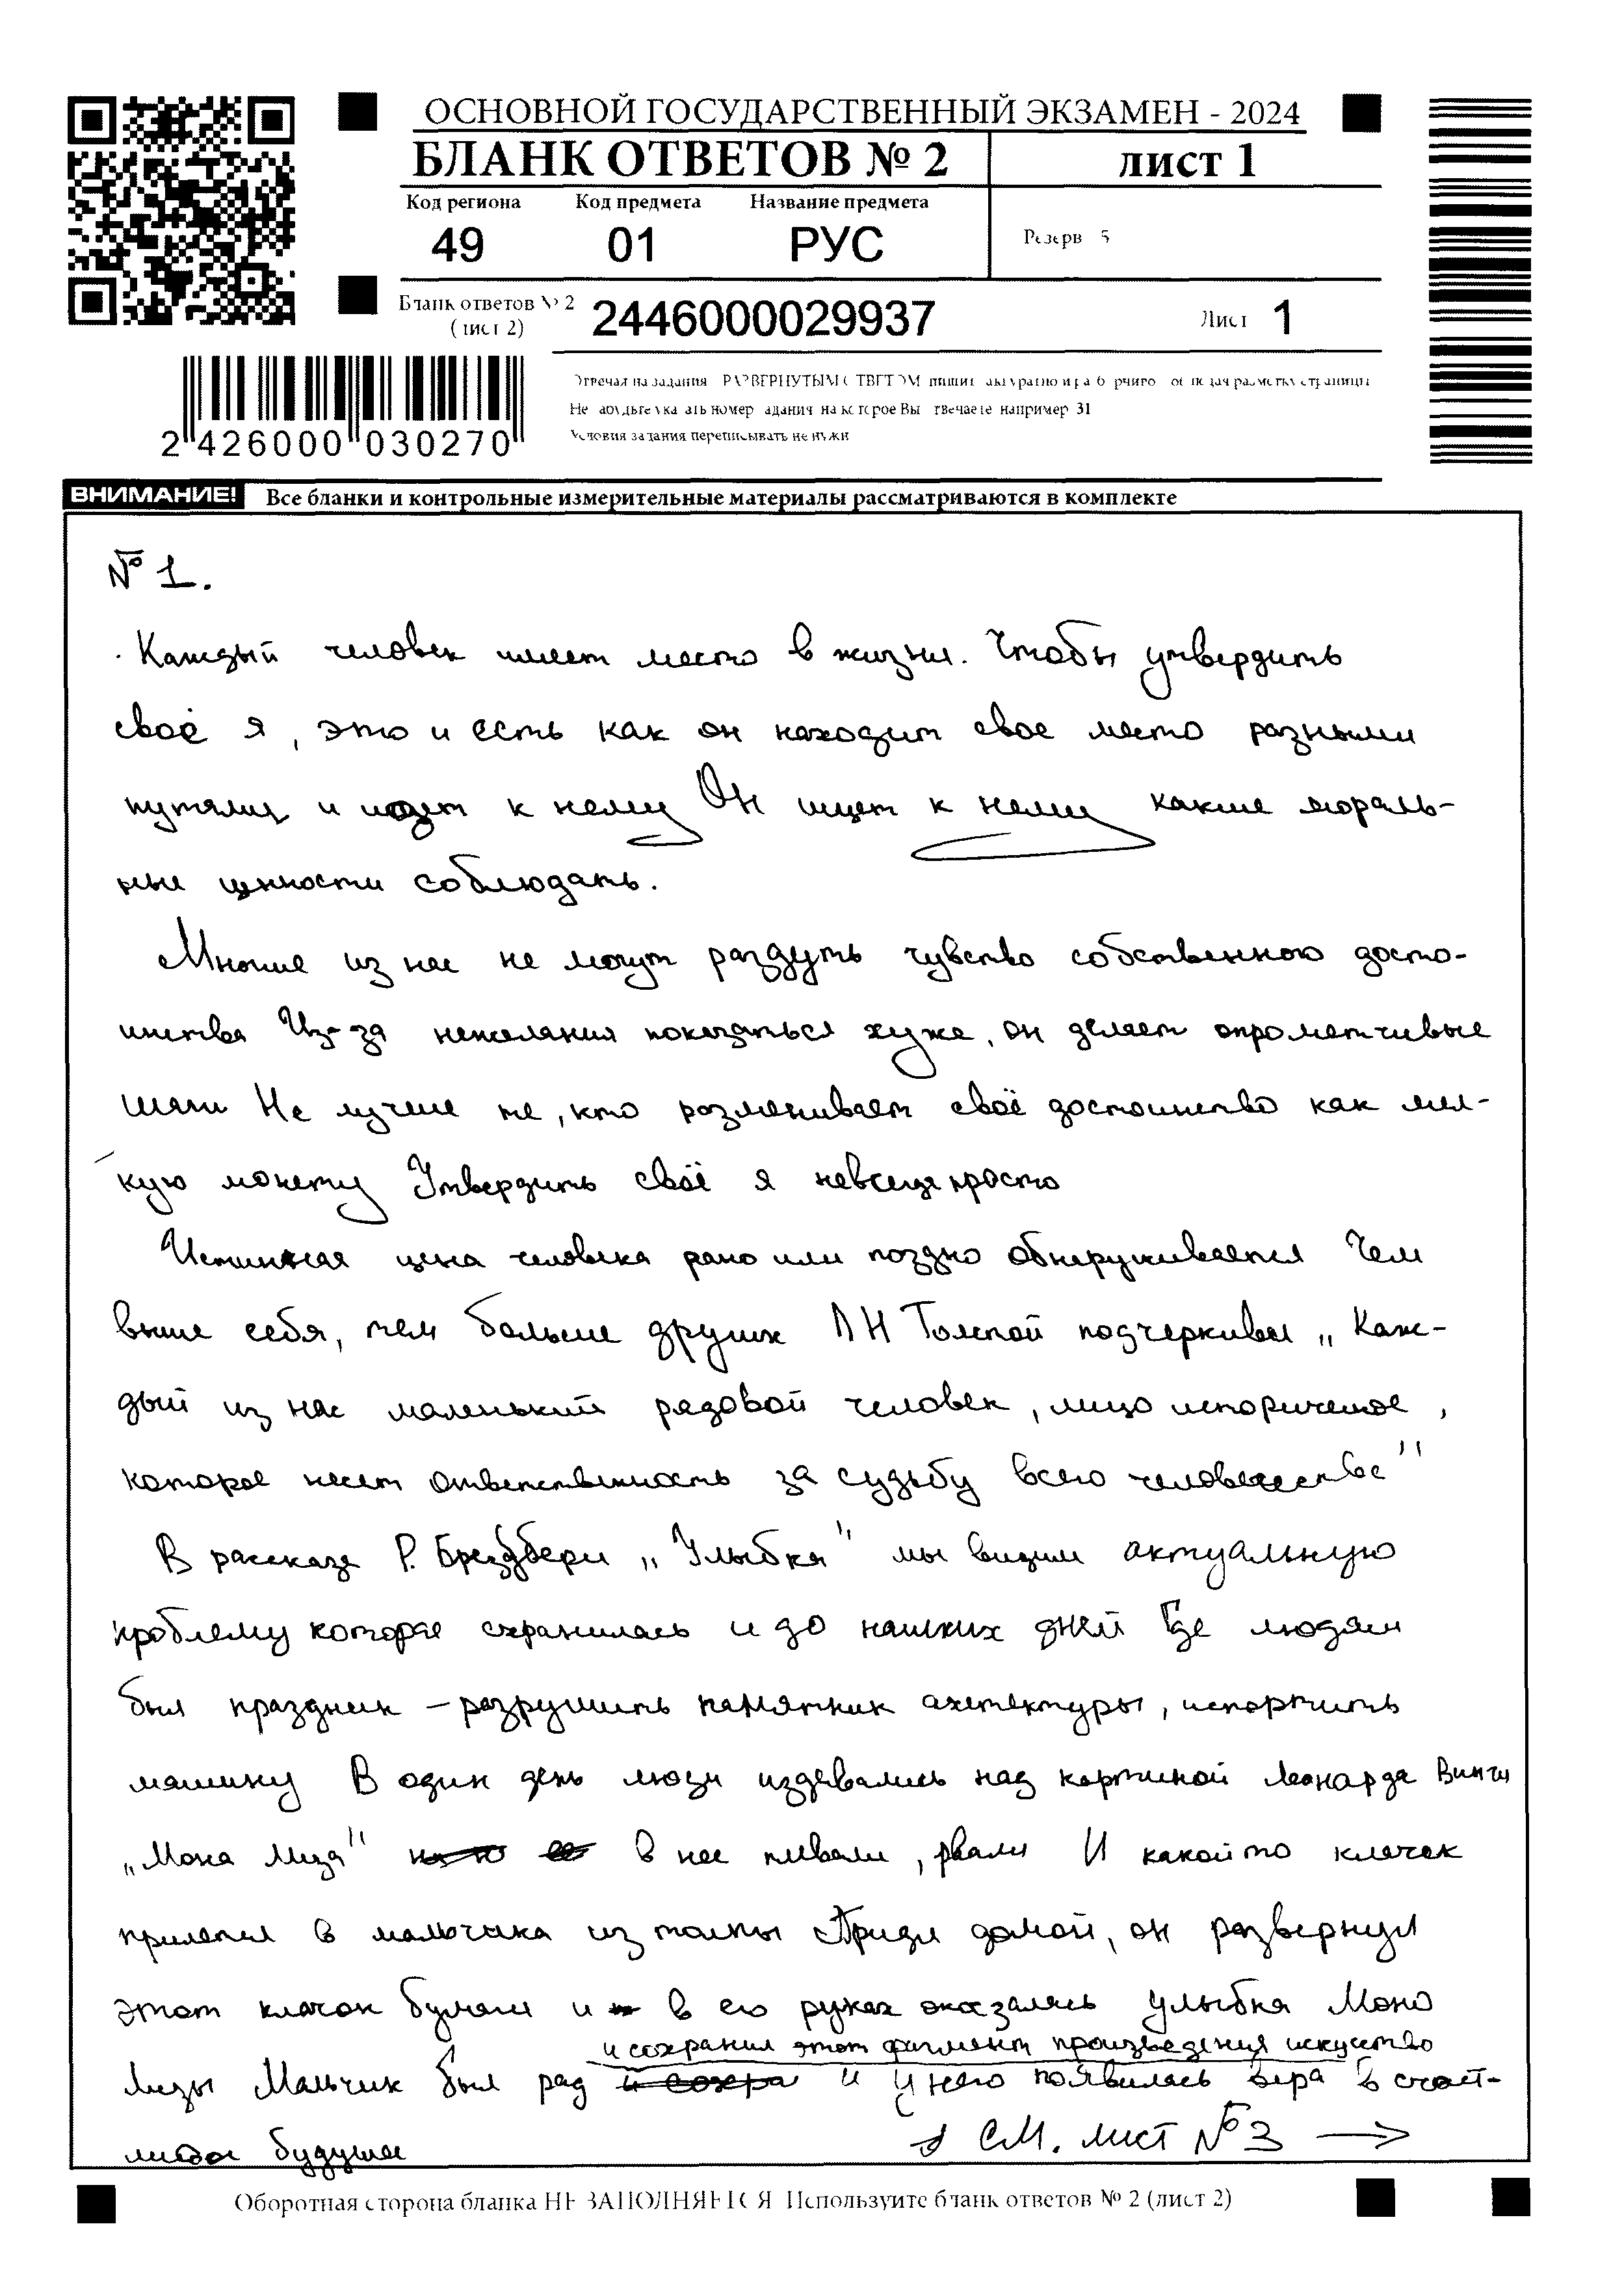 ОСНОВНОЙ ГОСУДАРСТВЕННЫЙ ЭКЗАМЕН - 2024
БЛАНК ОТВЕТОВ № 2
лист 1
Код региона Код предмета Название предмета
49 01 РУС
Резерв 5
Бланк ответов № 2
(лист 2)
2446000029937
Лист 1
2 426000 030270
Условия задания переписывать не нужн
ВНИМАНИЕ! Все бланки и контрольные измерительные материалы рассматриваются в комплекте
№ 1.
Каждый человек имеет место в жизни. Чтобы утвердить
своё я, это и есть как он находит свое место разными
путями и идет к нему Он ищет к нему какие мораль-
ные ценности соблюдать.
Многие из нас не могут раздуть чувство собственного досто-
инства Из-за нежелания показаться хуже, он делает опрометчивые
шаги Не лучше те, кто разменивает своё достоинство как мел-
кую монету Утвердить своё я невсегда просто
Истинная цена человека рано или поздно обнаруживается Чем
выше себя, тем больше других Л Н Толстой подчеркивал „Каж-
дый из нас маленький рядовой человек, лицо историческое,
которое несет ответственность за судьбу всего человечества"
В рассказе Р. Брэдбери „Улыбка" мы видим актуальную
проблему которая сохранилась и до наших дней Где людям
был праздник – разрушить памятник ахетектуры, испортить
машину В один день люди издевались над картиной Леонарда Винчи
„Мона Лиза" в нее плевали, рвали И какойто клочек
прилетел в мальчика из толпы Придя домой, он развернул
этот клочок бумаги и в его руках оказалась улыбка Моно
и сохранил этот фагмент произведения искуство
Лизы Мальчик был рад и у него появилась вера в счаст-
ливое будущее
см. лист № 3 →
Оборотная сторона бланка НЕ ЗАПОЛНЯЕТСЯ Используите бланк ответов № 2 (лист 2)